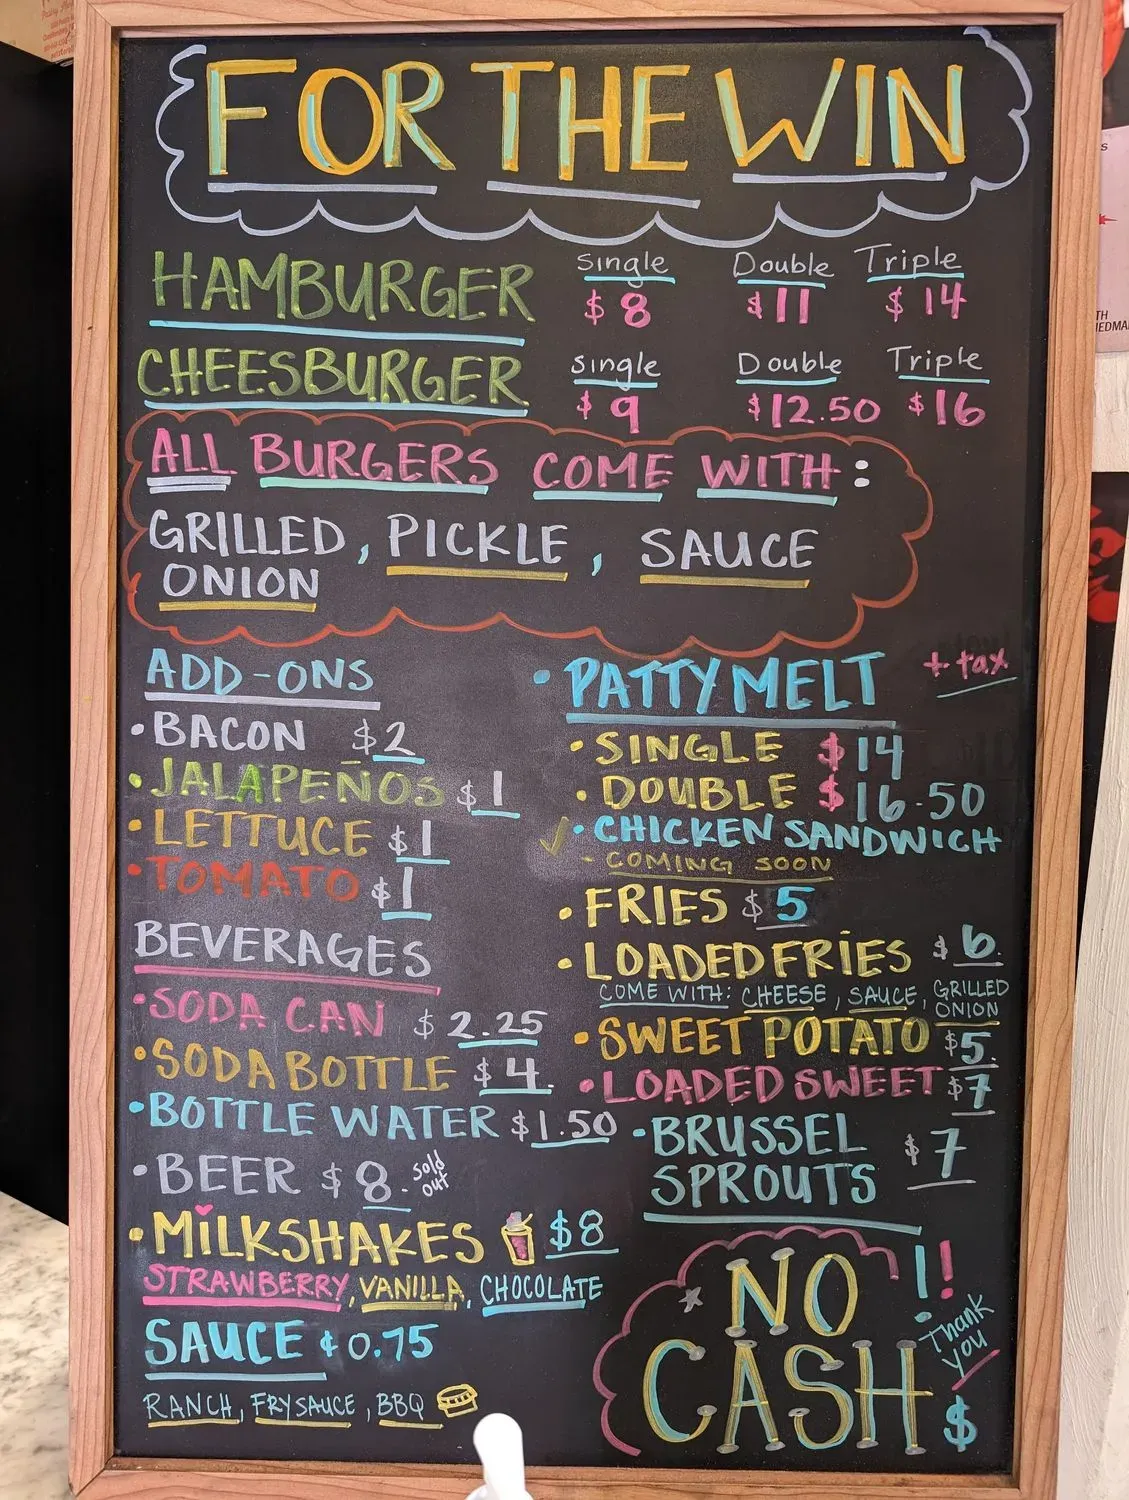 FOR THE WIN
HAMBURGER Single $8 Double $11 Triple $14
CHEESBURGER Single $9 Double $12.50 Triple $16
ALL BURGERS COME WITH:
GRILLED ONION, PICKLE, SAUCE
ADD-ONS
• BACON $2
• JALAPEÑOS $1
• LETTUCE $1
• TOMATO $1
BEVERAGES
• SODA CAN $2.25
• SODA BOTTLE $4.
• BOTTLE WATER $1.50
• BEER $8. sold out
• MILKSHAKES $8
STRAWBERRY, VANILLA, CHOCOLATE
SAUCE $0.75
RANCH, FRY SAUCE, BBQ
• PATTY MELT + tax
• SINGLE $14
• DOUBLE $16.50
• CHICKEN SANDWICH
- COMING SOON
• FRIES $5
• LOADED FRIES $6.
COME WITH: CHEESE, SAUCE, GRILLED ONION
• SWEET POTATO $5.
• LOADED SWEET $7
• BRUSSEL SPROUTS $7
NO CASH!!
Thank you
$